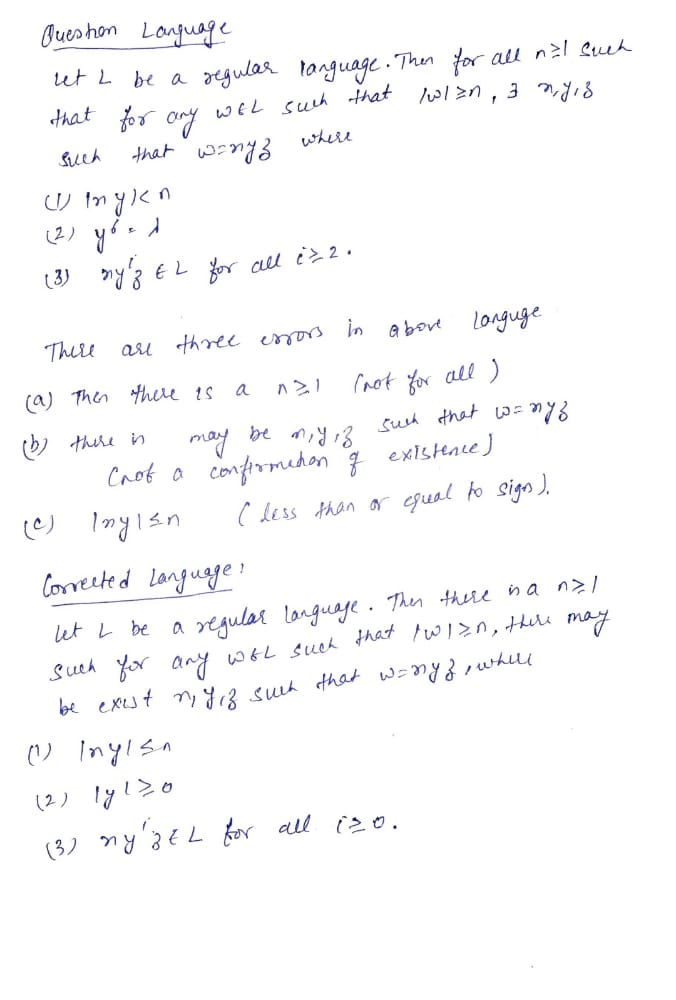 Question Language
Let L be a regular language. Then for all n≥1 such
that for any w∈L such that |w|≥n, ∃ x,y,z
such that w=xyz where
(1) |xy|<n
(2) y⁰ = λ
(3) xyⁱz ∈ L for all i≥2.
There are three errors in above languge
(a) Then there is a n≥1 (not for all)
(b) there is may be x,y,z such that w=xyz
(not a confirmation of existence)
(c) |xy|≤n (less than or equal to sign).
Corrected Language:
Let L be a regular language. Then there is a n≥1
such for any w∈L such that |w|≥n, there may
be exist x,y,z such that w=xyz, where
(1) |xy|≤n
(2) |y|≥0
(3) xyⁱz∈L for all i≥0.